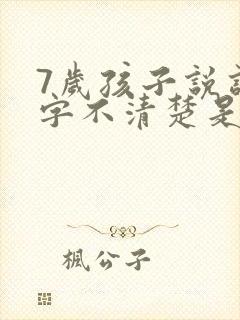 7歲孩子說
字不清楚是
楓公子